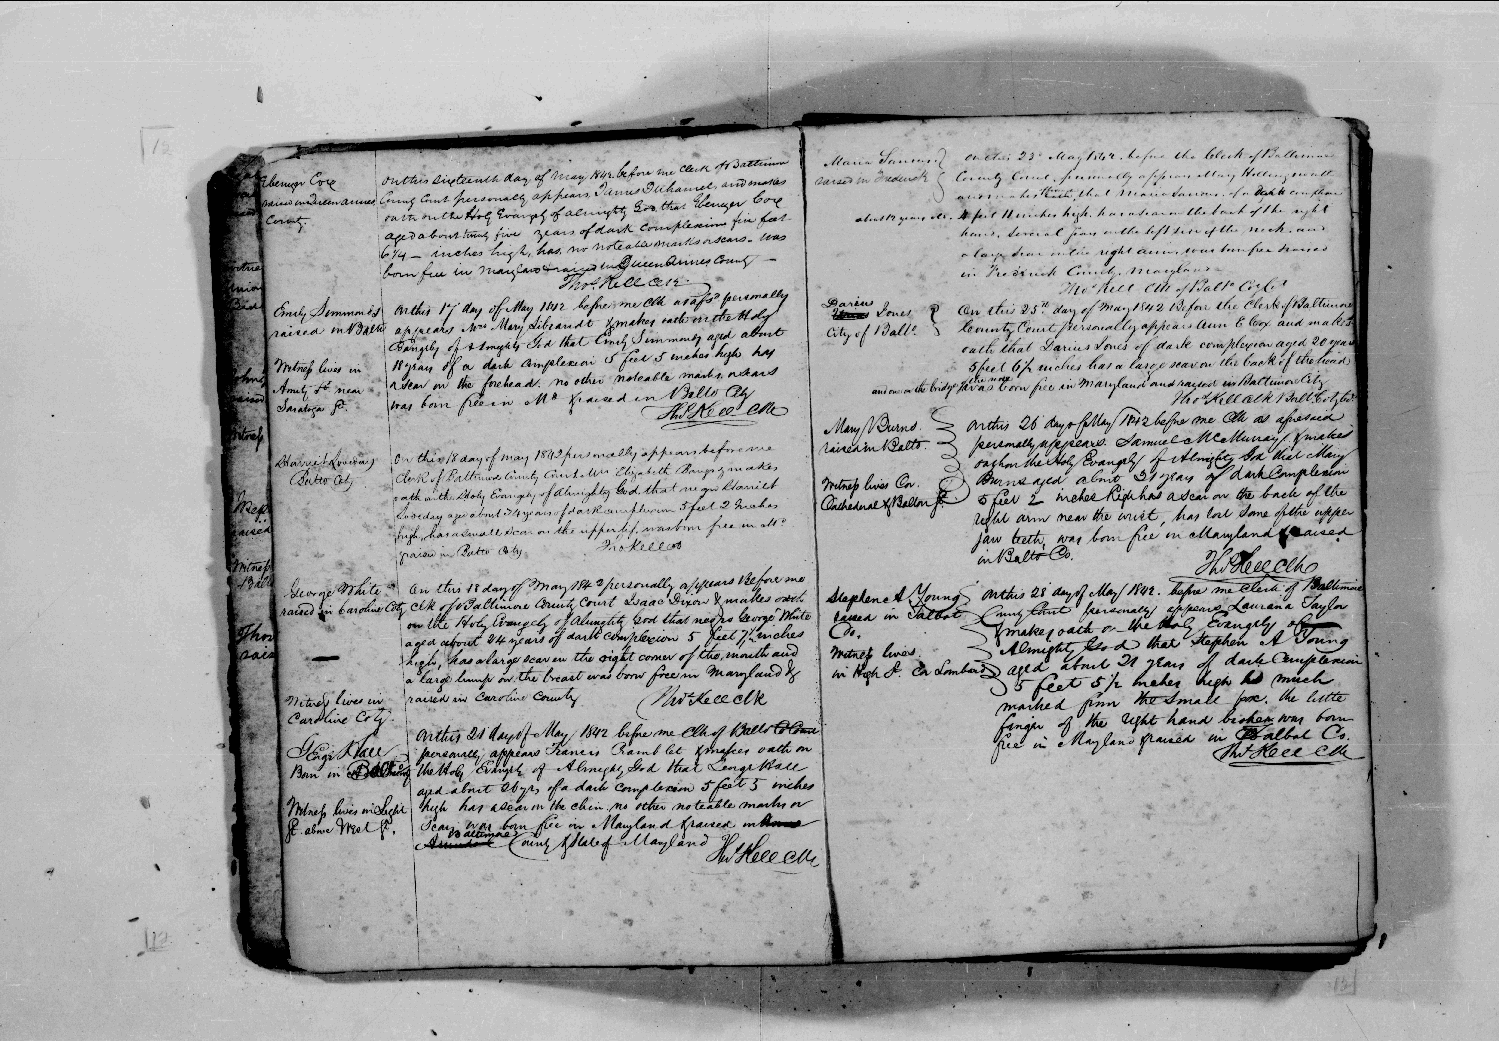 Ebenezer Coxe
raised in Queen Annes
County
on this sixteenth day of May 1842 before me Clerk of Baltimore
County Court personally appears James Duhamel, and makes
oath on the Holy Evangely of Almighty God that Ebenezer Coxe
aged about twenty five years of dark complexion five feet
6 1/4 inches high, has no noteable marks or scars. was
born free in Maryland & raised in Queen Annes County
Thos Kell Clk
Emily Simmonds
raised in Balto
Witness lives in
St. near
Saratoga St.
on this 17 day of May 1842 before me Clk as afsd personally
appears Mrs Mary & makes oath on the Holy
Evangely of Almighty God that Emily Simmonds aged about
18 years of a dark complexion 5 feet 5 inches high has
a scar on the forehead. no other noteable marks or scars
was born free in Md & raised in Balto City
Thos Kell Clk
Harriet
Balto City
On this 18 day of may 1842 personally appears before me
Clerk of Baltimore County Court Mrs Elizabeth makes
oath on the Holy Evangely of Almighty God that negro Harriet
age about 24 years of dark complexion 5 feet 2 inches
high, has a small scar on the upper lip, was born free in Md
raised in Balto City
Tho Kell
George White
raised in Caroline Coty
Witness lives in
Caroline Coty.
On this 18 day of May 1842 personally appears Before me
clk of Baltimore County Court Isaac Dixon & makes oath
on the Holy Evangely of Almighty God that negro George White
aged about 24 years of dark complexion 5 feet 7 1/2 inches
high, has a large scar on the right corner of the mouth and
a large lump on the breast was born free in Maryland &
raised in Caroline County
Thos Kell clk
Geoge Hall
Born in Balto County
Witness lives on Light
St. above West St.
on this 21 day of May 1842 before me Clk of Balto C Court
personally appears Francis Ramblet & makes oath on
the Holy Evangely of Almighty God that George Hall
aged about 26 yrs of a dark complexion 5 feet 5 inches
high has a scar on the chin. no other noteable marks or
Scars was born free in Maryland & raised in Anne
Arundel Baltimore County & State of Maryland
Thos Kell Clk
Maria
raised in Frederick
on this 23d May 1842. before the Clerk of Baltimore
County Court, personally appears Mary Hollingsworth
and makes oath that Maria of a dark complexion
about years 4 feet 11 inches high, has a scar on the back of the right
hand, several scars on the left side of the neck, and
a large scar on the right arm, was born free & raised
in Frederick County, Maryland
Thos Kell Clk of Balto Co Ct
Darius
Jones
City of Balto
On this 25th day of May 1842 Before the Clerk of Baltimore
County Court personally appears Ann E Cox and makes
oath that Darius Jones of dark complexion aged 20 years
5 feet 6 1/2 inches has a large scar on the back of the head
and one on the bridge of the nose was born free in Maryland and raised in Baltimore City
Thos Kell Clk Balto Coty Ct
Mary Burns
raised in Balto.
Witness lives Cor.
Cathedral & St.
on this 26 day of May 1842 before me Clk as aforesaid
personally appears Samuel McMurray, & makes
oath on the Holy Evangely of Almighty God that Mary
Burns aged about 21 years of dark Complexion
5 feet 2 inches high has a scar on the back of the
right arm near the wrist, has lost some of the upper
jaw teeth, was born free in Maryland & raised
in Balto Co.
Thos Kell Clk
Stephen A Young
raised in Talbot
Co.
Witness lives
in High St. Cor Lombard
on this 28 day of May 1842. before me Clerk of Baltimore
County Court personally appears Laurana Taylor
& makes oath on the Holy Evangely of
Almighty God that Stephen A Young
aged about 21 years of dark Complexion
5 feet 5 1/2 inches high is much
marked from the Small pox. the little
finger of the right hand broken was born
free in Maryland & raised in Talbot Co.
Thos Kell Clk